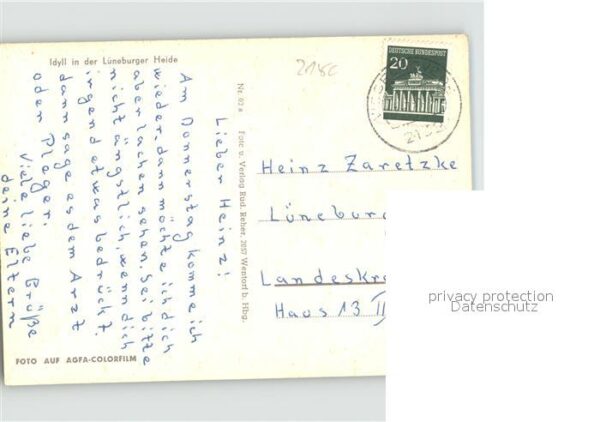 Idyll in der Lüneburger Heide
Lieber Heinz!
Am Donnerstag komme ich
wieder, dann möchte ich dich
aber lachen sehen. Sei bitte
nicht ängstlich, wenn dich
irgend etwas bedrückt.
dann sage es dem Arzt
oder Pfleger.
Viele liebe Grüße
deine Eltern
FOTO AUF AGFA-COLORFILM
Nr. 62 a
Foto u. Verlag Rud. Reher, 2057 Wentorf b. Hbg.
215c
DEUTSCHE BUNDESPOST
20
Heinz Zaretzke
Lüneburg
Landeskra
Haus 13 II
privacy protection
Datenschutz